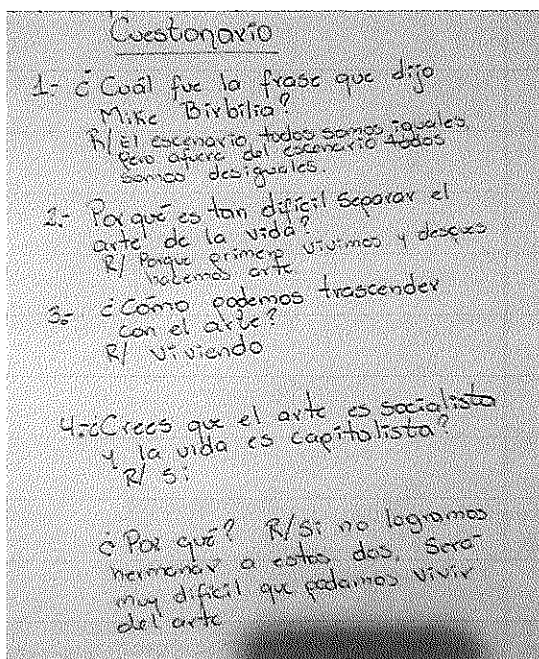 Cuestonario
1- ¿Cuál fue la frase que dijo
Mike Birbilia?
R/ El escenario todos somos iguales,
pero afuera del escenario todos
somos desiguales.
2.- Por qué es tan difícil separar el
arte de la vida?
R/ Porque primero vivimos y después
hacemos arte
3.- ¿Cómo podemos trascender
con el arte?
R/ viviendo
4.-¿Crees que el arte es socialista
y la vida es capitalista?
R/ Si
¿Por qué? R/ Si no logramos
hermanar a estos dos. Será
muy difícil que podamos vivir
del arte